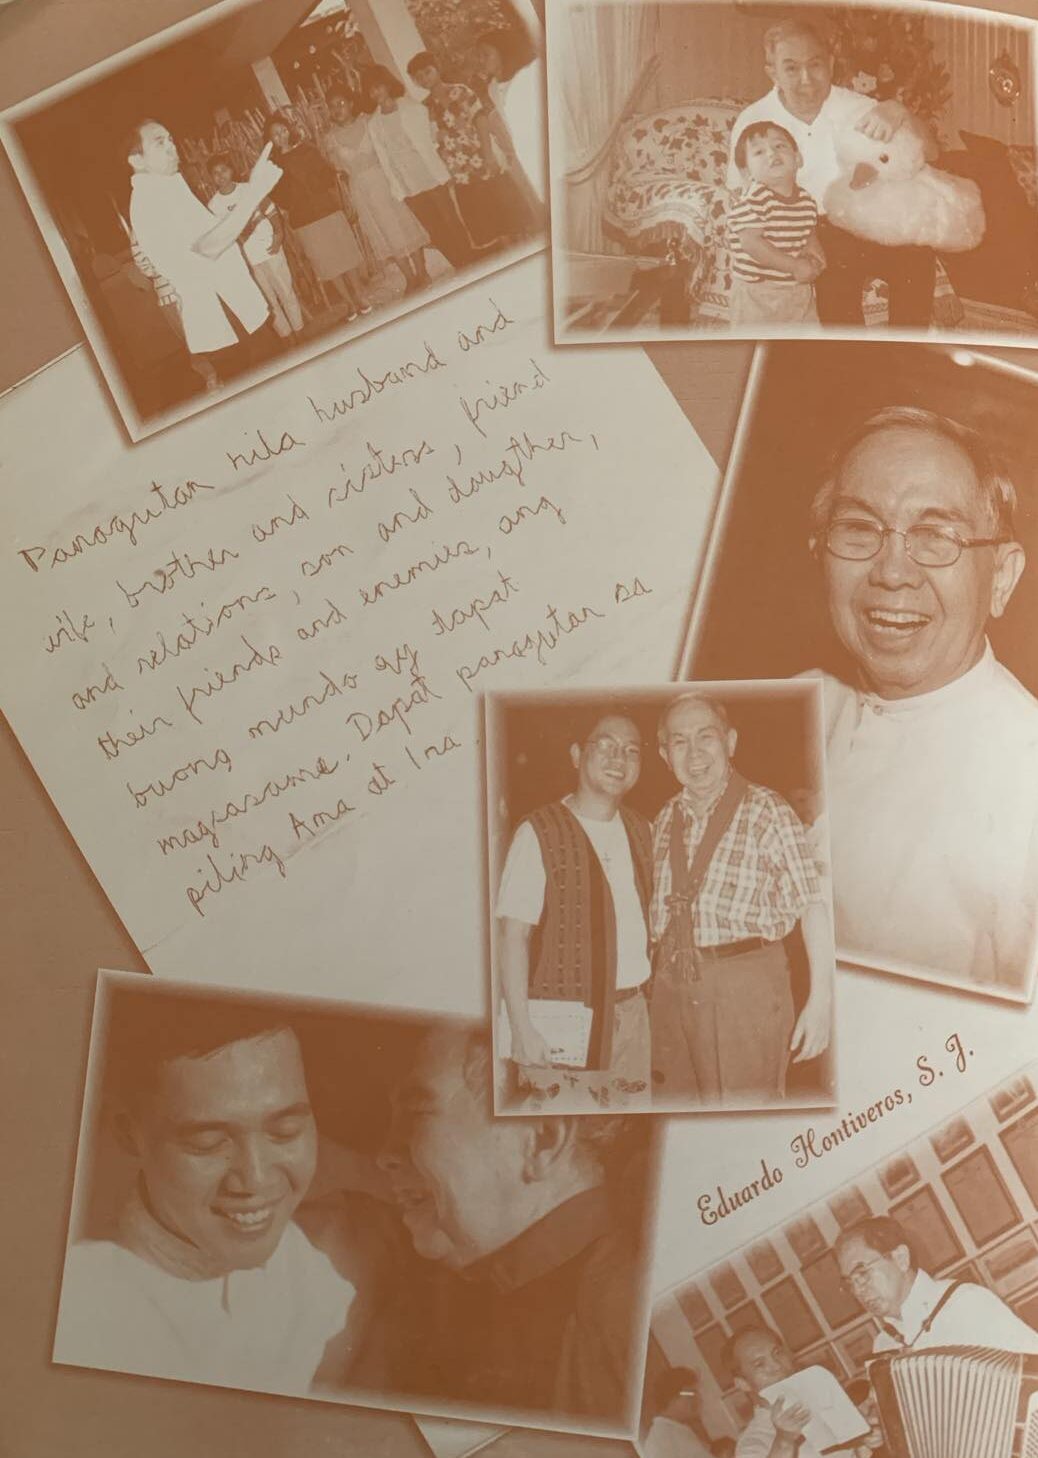 Panagutan nila husband and
wife, brother and sisters, friend
and relations, son and daughter,
their friends and enemies, ang
buong mundo ay dapat
magsasama. Dapat panagutan sa
piling Ama at Ina.
Eduardo Hontiveros, S. J.